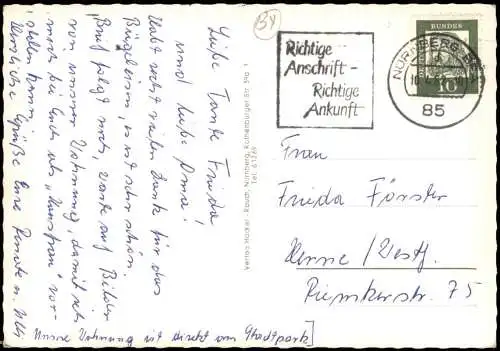 Liebe Tante Frieda,
und liebe Oma!
Habt recht vielen Dank für das
Bügeleisen, es ist sehr schön.
Brief folgt noch, warte auf Bilder
von unserer Wohnung, damit ich
mich bei Euch als "Hausfrau" vor-
stellen kann.
Herzliche Grüße Eure Renate u. Uli
Unsere Wohnung ist direkt am Stadtpark]
BV
Verlag Häckel-Rauch, Nürnberg, Rothenburger Str. 39a
Tel. 61269
Richtige
Anschrift -
Richtige
Ankunft
NÜRNBERG
85
BUNDES
10
Frau
Frieda Förster
Herne / Westf.
Riemkerstr. 75